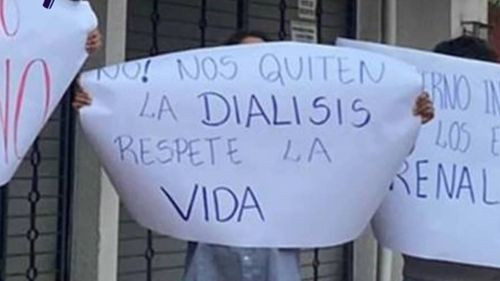 NO
NO! NOS QUITEN
LA DIALISIS
RESPETE LA
VIDA
LOS
RENAL